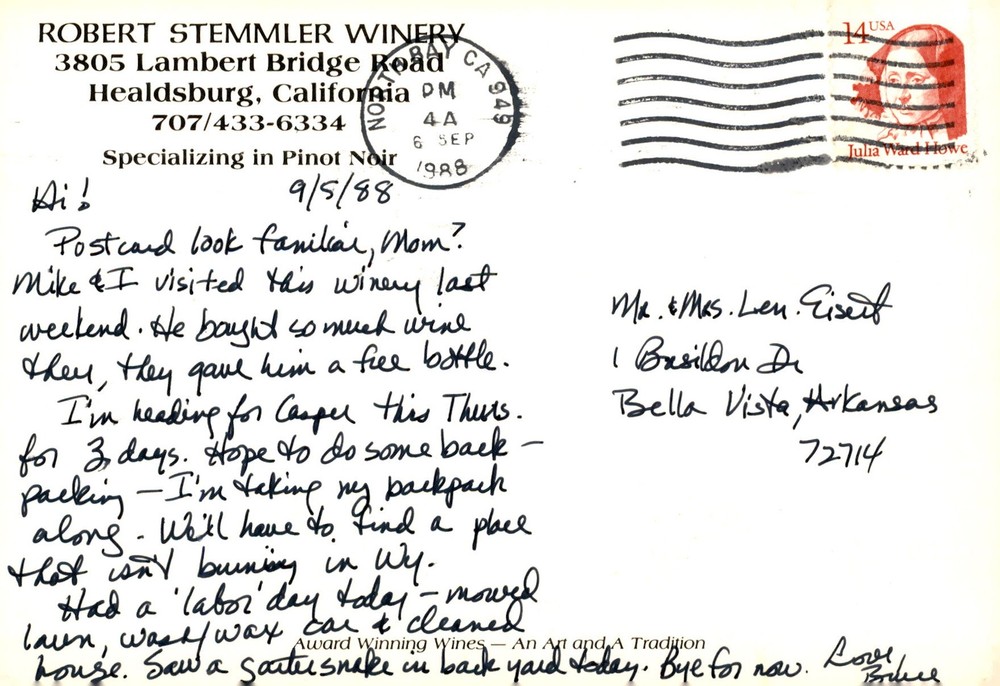 ROBERT STEMMLER WINERY
3805 Lambert Bridge Road
Healdsburg, California
707/433-6334
Specializing in Pinot Noir
NORTH BAY CA 949
PM
4A
6 SEP
1988
14 USA
Julia Ward Howe
Hi! 9/5/88
Postcard look familiar, Mom?
Mike & I visited this winery last
weekend. He bought so much wine
there, they gave him a free bottle.
I'm heading for Casper this Thurs.
for 3 days. Hope to do some back-
packing — I'm taking my backpack
along. We'll have to find a place
that isn't burning in Wy.
Had a 'labor' day today - mowed
lawn, wash/wax car & cleaned
house. Saw a gartersnake in back yard today. Bye for now. Love
Award Winning Wines — An Art and A Tradition
Mr. & Mrs. Len. Eisert
1 Basildon Dr
Bella Vista, Arkansas
72714